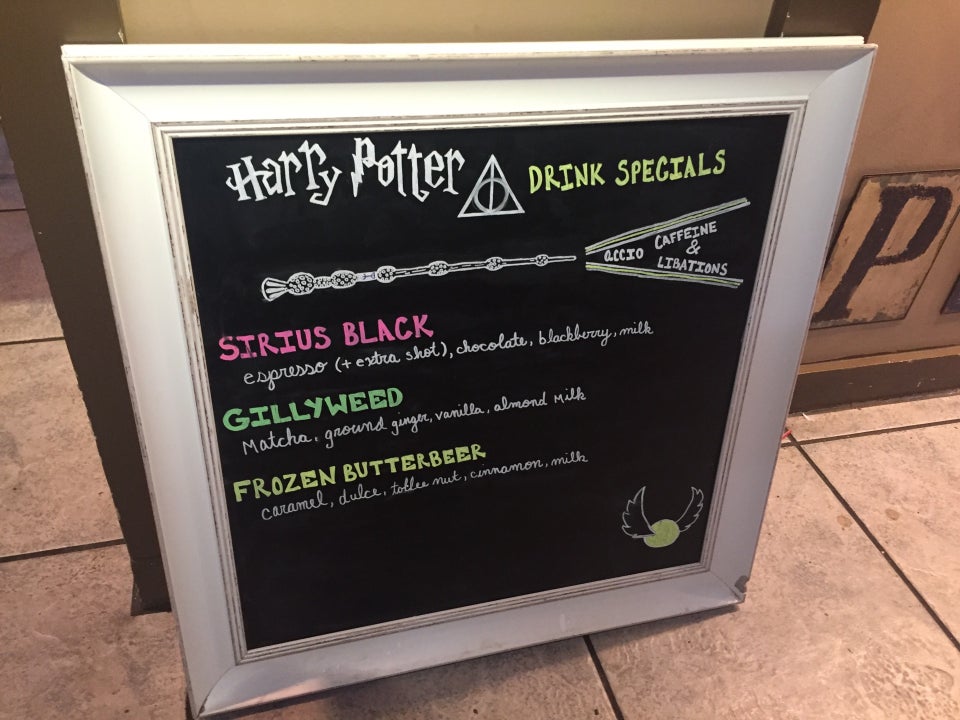 Harry Potter DRINK SPECIALS
accio CAFFEINE
&
LIBATIONS
SIRIUS BLACK
espresso (+ extra shot), chocolate, blackberry, milk
GILLYWEED
Matcha, ground ginger, vanilla, almond Milk
FROZEN BUTTERBEER
caramel, dulce, toffee nut, cinnamon, milk
P